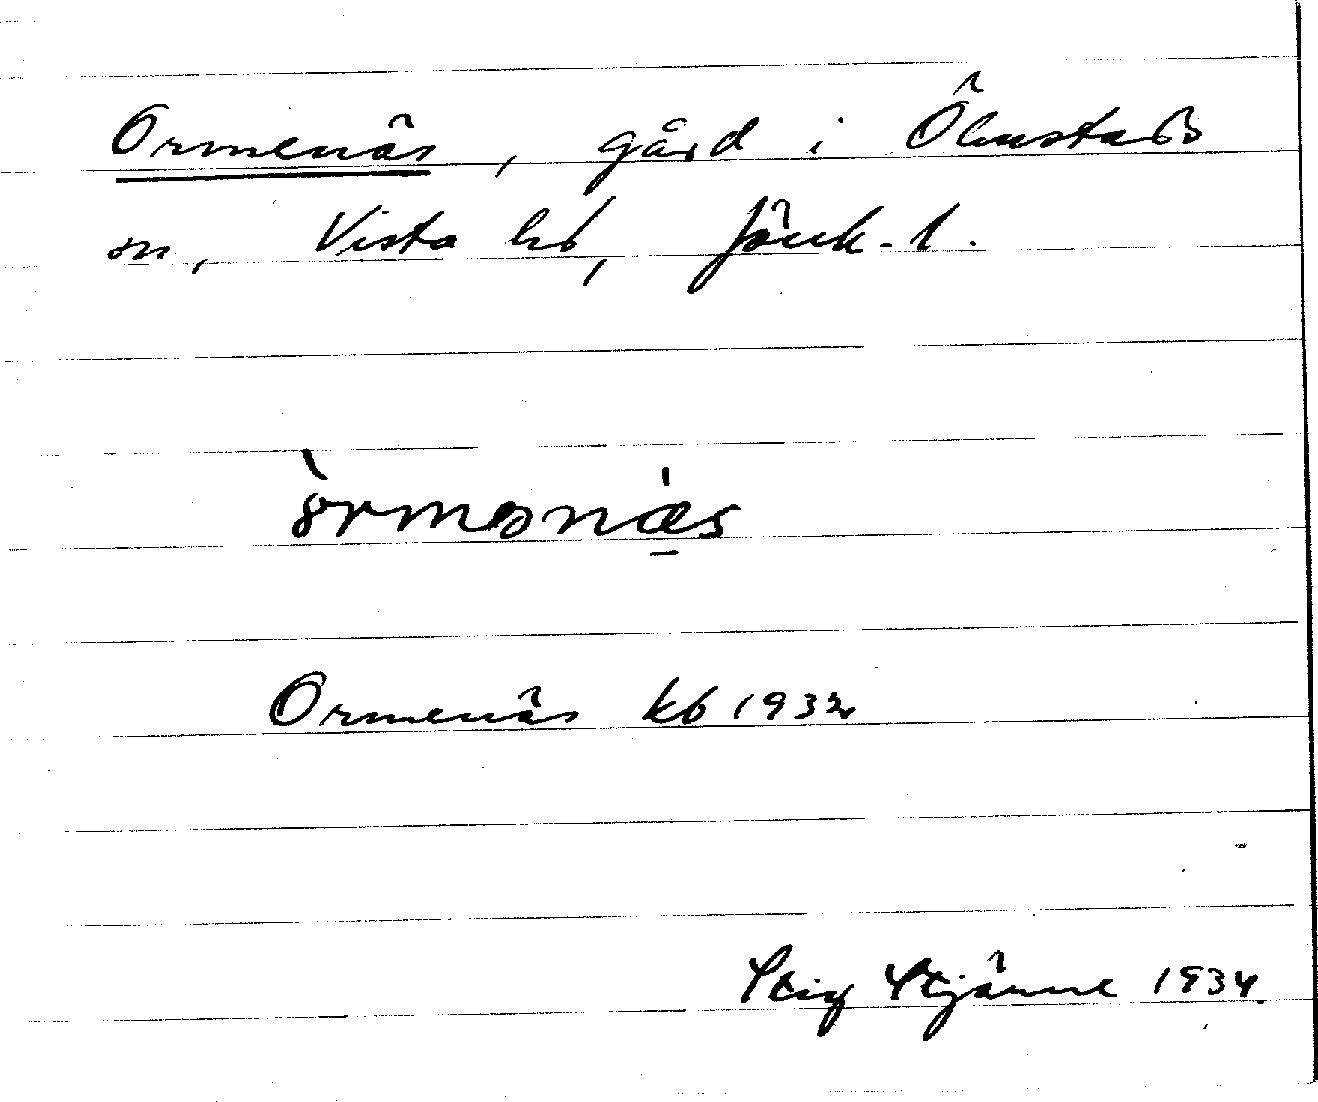 Ormenäs, gård i Ölmstads
sn, Vista hd, Jönk. l.
òrmənæ̠s
Ormenäs kb 1932
Stig Stjärne 1934.